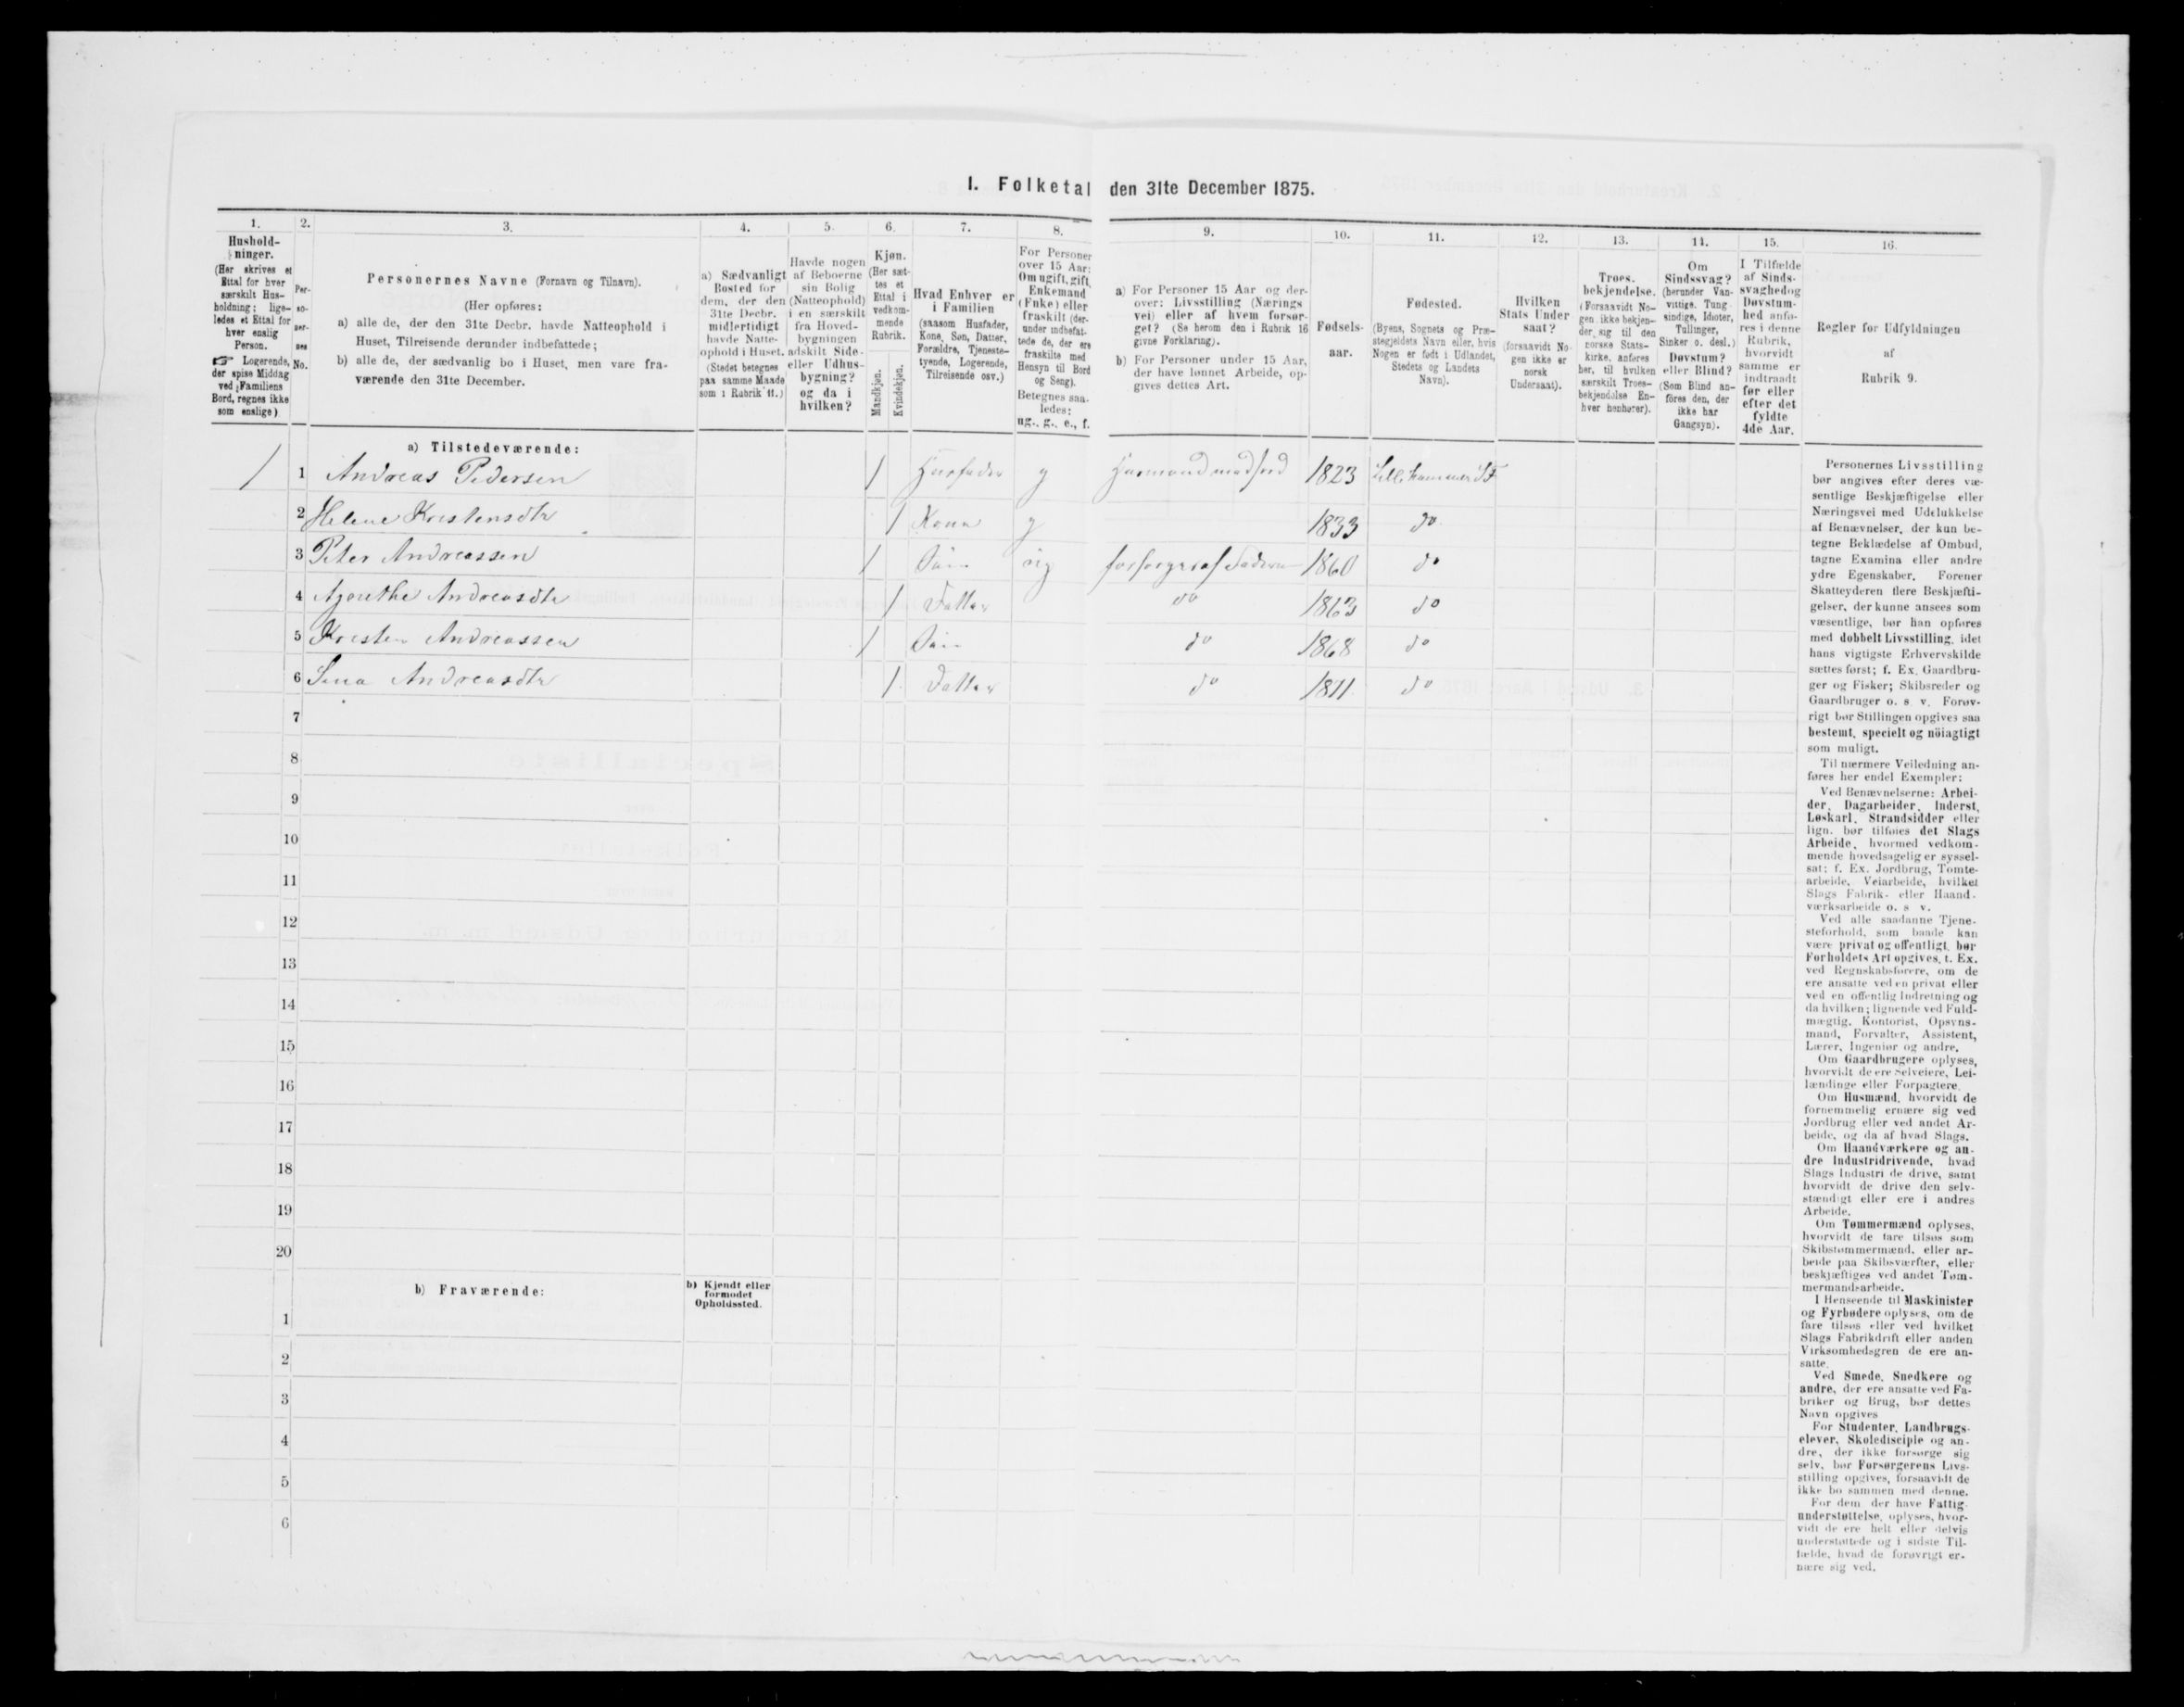 I. Folketal den 31te December 1875.
1. 2. 3. 4. 5. 6. 7. 8. 9. 10. 11. 12. 13. 14. 15. 16.
Hushold-
ninger.
(Her skrives et
Ettal for hver
særskilt Hus-
holdning; lige-
ledes et Ettal for
hver enslig
Person.
☞ Logerende,
der spise Middag
ved Familiens
Bord, regnes ikke
som enslige)
Per-
so-
ner-
nes
No.
Personernes Navne (Fornavn og Tilnavn).
(Her opføres:
a) alle de, der den 31te Decbr. havde Natteophold i
Huset, Tilreisende derunder indbefattede;
b) alle de, der sædvanlig bo i Huset, men vare fra-
værende den 31te December.
a) Sædvanligt
Bosted for
dem, der den
31te Decbr.
midlertidigt
havde Natte-
ophold i Huset.
(Stedet betegnes
paa samme Maade
som i Rubrik 11.)
Havde nogen
af Beboerne
sin Bolig
(Natteophold)
i en særskilt
fra Hoved-
bygningen
adskilt Side-
eller Udhus-
bygning?
og da i
hvilken?
Kjøn.
(Her sæt-
tes et
Ettal i
vedkom-
mende
Rubrik.
Mandkjøn.
Kvindekjøn.
Hvad Enhver er
i Familien
(saasom Husfader,
Kone, Søn, Datter,
Forældre, Tjeneste-
tyende, Logerende,
Tilreisende osv.)
For Personer
over 15 Aar:
Om ugift, gift,
Enkemand
(Enke) eller
fraskilt (der-
under indbefat-
tede de, der ere
fraskilte med
Hensyn til Bord
og Seng).
Betegnes saa-
ledes:
ug., g., e., f.
a) For Personer 15 Aar og der-
over: Livsstilling (Nærings
vei) eller af hvem forsør-
get? (Se herom den i Rubrik 16
givne Forklaring).
b) For Personer under 15 Aar,
der have lønnet Arbeide, op-
gives dettes Art.
Fødsels-
aar.
Fødested.
(Byens, Sognets og Præ-
stegjeldets Navn eller, hvis
Nogen er født i Udlandet,
Stedets og Landets
Navn).
Hvilken
Stats Under
saat?
(forsaavidt No-
gen ikke er
norsk
Undersaat).
Troes.
bekjendelse.
(Forsaavidt No-
gen ikke bekjen-
der sig til den
norske Stats-
kirke, anføres
her, til hvilken
særskilt Troes-
bekjendelse En-
hver henhører).
Om
Sindssvag?
(herunder Van-
vittige, Tung-
sindige, Idioter,
Tullinger,
Sinker o. desl.)
Døvstum?
eller Blind?
(Som Blind an-
føres den, der
ikke har
Gangsyn).
I Tilfælde
af Sinds-
svaghedog
Døvstum-
hed anfø-
res i denne
Rubrik,
hvorvidt
samme er
indtraadt
før eller
efter det
fyldte
4de Aar.
Regler for Udfyldningen
af
Rubrik 9.
a) Tilstedeværende:
1 1 Andreas Pedersen 1 Husfader g Husmand med jord 1823 Lillehammer
2 Helene Kristensdtr 1 Kone g 1833 do
3 Peter Andreassen 1 Søn ug forsørges af Faderen 1860 do
4 Agnethe Andreasdtr 1 Datter do 1863 do
5 Kristen Andreassen 1 Søn do 1868 do
6 Sina Andreasdtr 1 Datter do 1871 do
7
8
9
10
11
12
13
14
15
16
17
18
19
20
b) Fraværende:
b) Kjendt eller
formodet
Opholdssted.
1
2
3
4
5
6
Personernes Livsstilling
bør angives efter deres væ-
sentlige Beskjæftigelse eller
Næringsvei med Udelukkelse
af Benævnelser, der kun be-
tegne Beklædelse af Ombud,
tagne Examina eller andre
ydre Egenskaber. Forener
Skatteyderen flere Beskjæfti-
gelser, der kunne ansees som
væsentlige, bør han opføres
med dobbelt Livsstilling, idet
hans vigtigste Erhvervskilde
sættes først; f. Ex. Gaardbru-
ger og Fisker; Skibsreder og
Gaardbruger o. s v. Forøv-
rigt bør Stillingen opgives saa
bestemt, specielt og nöiagtigt
som muligt.
Til nærmere Veiledning an-
føres her endel Exempler:
Ved Benævnelserne: Arbei-
der, Dagarbeider, Inderst,
Løskarl, Strandsidder eller
lign. bør tilføies det Slags
Arbeide, hvormed vedkom-
mende hovedsagelig er syssel-
sat; f. Ex. Jordbrug, Tomte-
arbeide, Veiarbeide, hvilket
Slags Fabrik- eller Haand-
værksarbeide o. s v.
Ved alle saadanne Tjene-
steforhold, som baade kan
være privat og offentligt, bør
Forholdets Art opgives, t. Ex.
ved Regnskabsførere, om de
ere ansatte ved en privat eller
ved en offentlig Indretning og
da hvilken; lignende ved Fuld-
mægtig, Kontorist, Opsyns-
mand, Forvalter, Assistent,
Lærer, Ingeniør og andre.
Om Gaardbrugere oplyses,
hvorvidt de ere Selveiere, Lei-
lændinge eller Forpagtere.
Om Husmænd, hvorvidt de
fornemmelig ernære sig ved
Jordbrug eller ved andet Ar-
beide, og da af hvad Slags.
Om Haandværkere og an-
dre Industridrivende, hvad
Slags Industri de drive, samt
hvorvidt de drive den selv-
stændigt eller ere i andres
Arbeide.
Om Tømmermænd oplyses,
hvorvidt de fare tilsøs som
Skibstømmermænd, eller ar-
beide paa Skibsværfter, eller
beskjæftiges ved andet Tøm-
mermandsarbeide.
I Henseende til Maskinister
og Fyrbødere oplyses, om de
fare tilsøs eller ved hvilket
Slags Fabrikdrift eller anden
Virksomhedsgren de ere an-
satte.
Ved Smede, Snedkere og
andre, der ere ansatte ved Fa-
briker og Brug, bør dettes
Navn opgives
For Studenter, Landbrugs-
elever, Skoledisciple og an-
dre, der ikke forsørge sig
selv, bør Forsørgerens Livs-
stilling opgives, forsaavidt de
ikke bo sammen med denne.
For dem der have Fattig-
understøttelse, oplyses, hvor-
vidt de ere helt eller delvis
understøttede og i sidste Til-
fælde, hvad de forøvrigt er-
nære sig ved.